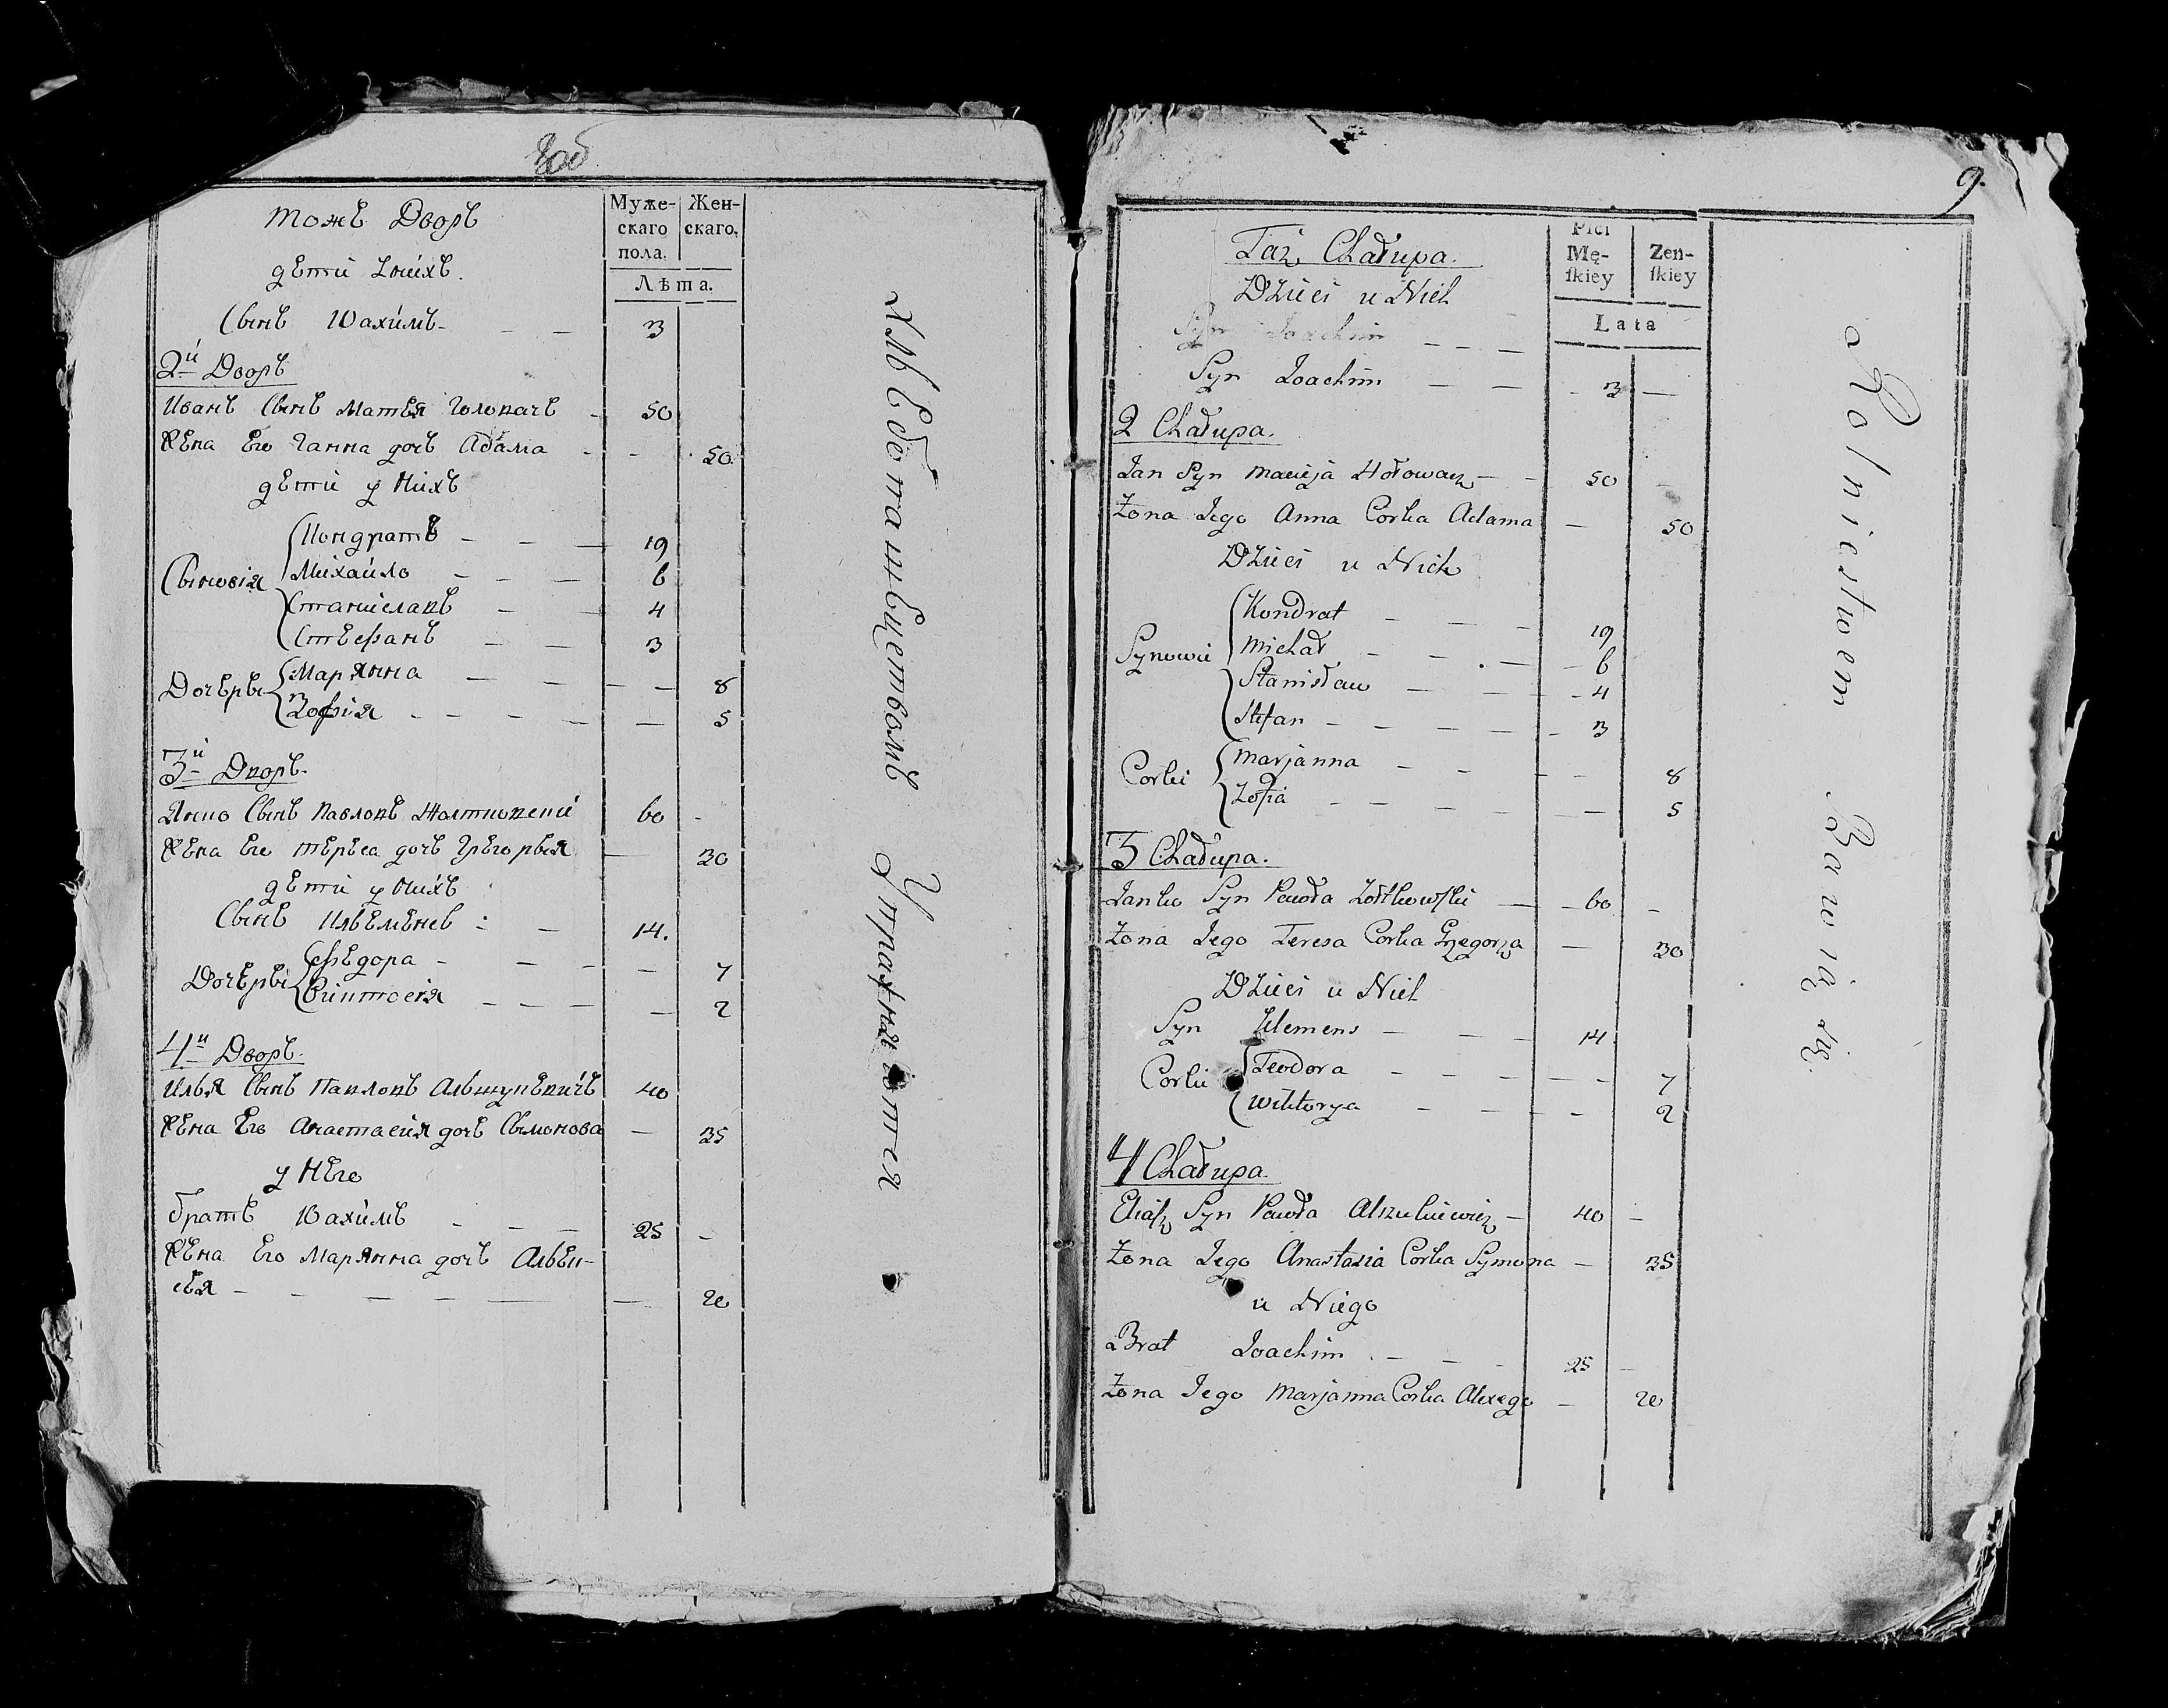 8об
Тожъ Дворъ
Муже-
скаго
пола.
Жен-
скаго.
Лѣта.
дѣти
Сынъ Юахимъ 3
2й Дворъ
Иванъ Сынъ Матѣя Головачъ 50
Жена Его Ганна дочъ Адама 50
дети у Нихъ
Сыновія
Кондратъ 19
Михайло 6
Станіславъ 4
Стефанъ 3
Дочери
Маряина 8
Зофія 5
3й Дворъ
Янко Сынъ Павловъ Жолтковскій 60
Жена Его Тереса дочъ Григорыя 30
дети у Нихъ
Сынъ Клеменсъ 14.
Дочери
Федора 7
Викторія 2
4й Дворъ.
Илья Сынъ Павловъ Альшукевичъ 40
Жена Его Анастасия дочъ Сымонова 35
у Него
братъ Юахимъ 25
Жена Его Маряина дочъ Алек-
сея 20
Хлѣбопашествомъ Упражняются
9.
Taż Chałupa.
Płci
Mę-
ſkiey
Zen-
ſkiey
Lata
Dzieci u Nich
Syn Joachim
Syn Joachim 3
2 Chałupa.
Jan Syn Macieja Hołowacz 50
Żona Jego Anna Corka Adama 50
Dzieci u Nich
Synowie
Kondrat 19
Michał 6
Stanisław 4
Stefan 3
Corki
Marjanna 8
Zofia 5
3 Chałupa.
Janko Syn Pawła Zołtkowſki 60
Żona Jego Teresa Corka Grzegorza 30
Dzieci u Nich
Syn Klemens 14
Corki
Teodora 7
Wiktorya 2
4 Chałupa.
Eliaſz Syn Pawła Alszukiewicz 40
Żona Jego Anastazia Corka Symona 35
u Niego
Brat Joachim 25
Żona Jego Marjanna Corka Alexego 20
Rolnictwem Bawią się